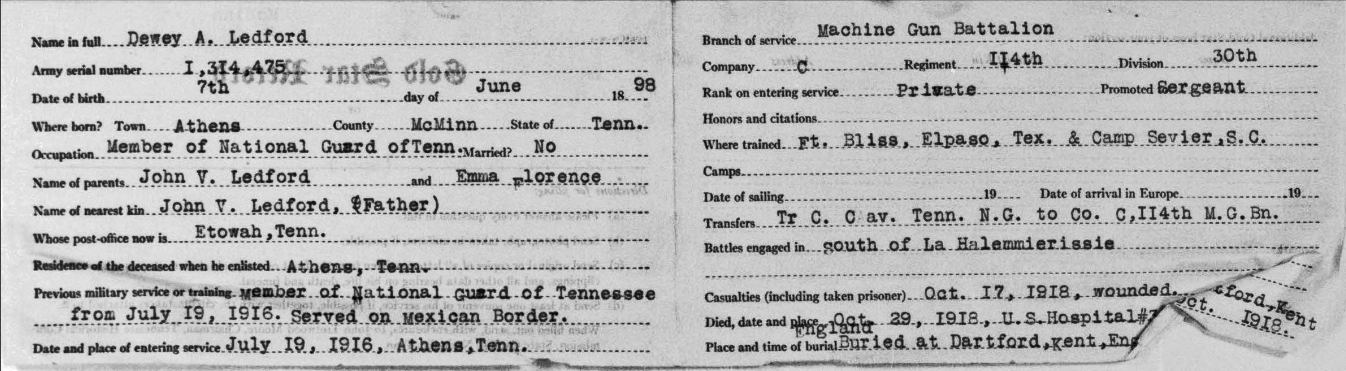 Name in full Dewey A. Ledford
Army serial number I,3I4,475
Date of birth 7th day of June 18 98
Where born? Town Athens County McMinn State of Tenn.
Occupation Member of National Guard ofTenn. Married? No
Name of parents John V. Ledford and Emma Florence
Name of nearest kin John V. Ledford, (Father)
Whose post-office now is Etowah,Tenn.
Residence of the deceased when he enlisted Athens, Tenn.
Previous military service or training Member of National Guard of Tennessee
from July I9, I9I6. Served on Mexican Border.
Date and place of entering service July I9, I9I6, Athens,Tenn.
Branch of service Machine Gun Battalion
Company C Regiment II4th Division 30th
Rank on entering service Private Promoted Sergeant
Honors and citations
Where trained Ft. Bliss, Elpaso, Tex. & Camp Sevier,S.C.
Camps
Date of sailing 19 Date of arrival in Europe 19
Transfers Tr C. Cav. Tenn. N.G. to Co. C,II4th M.G.Bn.
Battles engaged in south of La Halemmierissie
Casualties (including taken prisoner) Oct. I7, I9I8, wounded.
Died, date and place Oct. 29, I9I8, U.S.Hospital#
England
Place and time of burial Buried at Dartford,Kent,Eng
tford,Kent
Oct. I9I8.
Gold Star Record